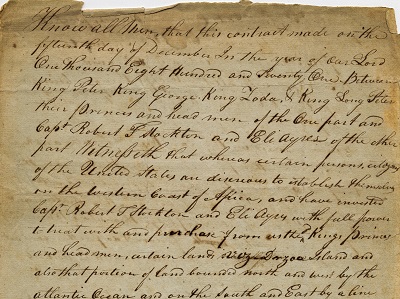 Know all Men, that this contract made on the
fifteenth day of December In the year of our Lord
One thousand Eight Hundred and Twenty One. Between
King Peter King George. King Zoda, & King Long Peter
their Princes and head men of the One part and
Capt. Robert F Stockton and Eli Ayres of the other
part Witnesseth that whereas certain persons, citizens
of the United States are desirous to establish themselves
on the Western Coast of Africa, and have invested
Capt. Robert F Stockton and Eli Ayres with full power
to treat with and purchase from us the Kings Princes
and head men, certain lands Dozoa Island and
also that portion of land bounded north and west by the
atlantic Ocean and on the South and East by a line